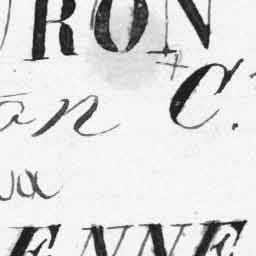 RON
on C.
ENNE